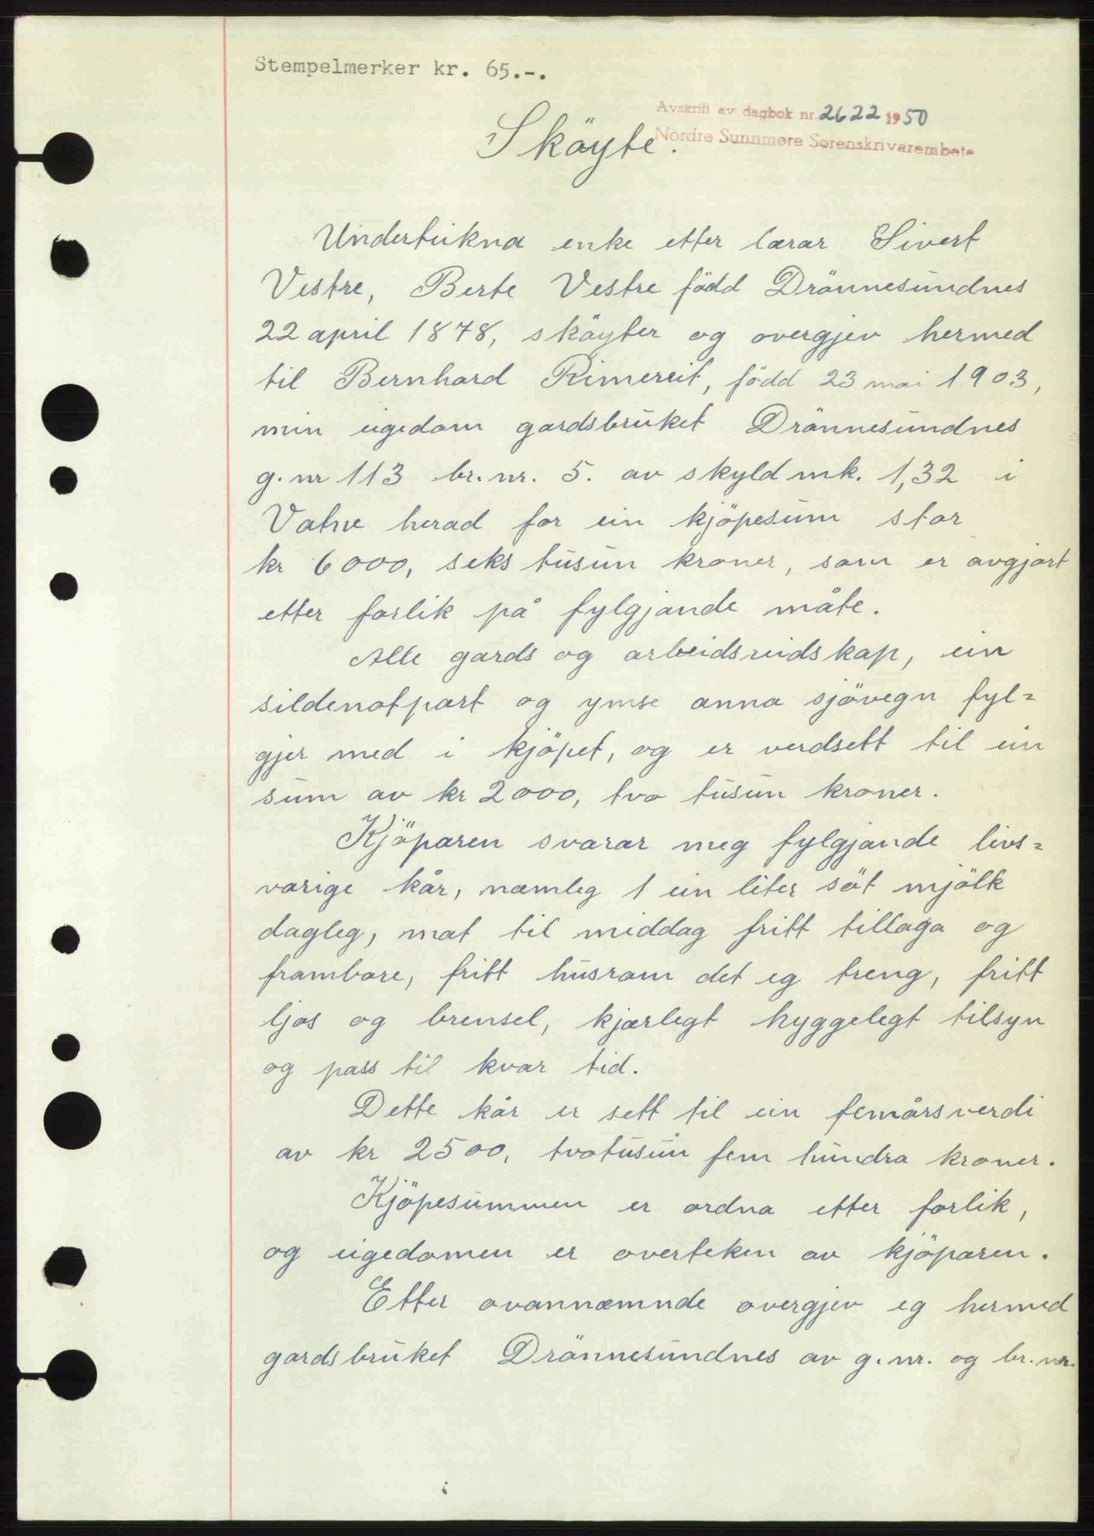 Stempelmerker kr. 65.-.
Avskrift av dagbok nr. 2622 1950
Nordre Sunnmøre Sorenskrivarembete
Sköyte.
Underteikna enke etter lærar Sivert
Vestre, Berte Vestre född Drönnesundnes
22 april 1878, sköyter og overgjev hermed
til Bernhard Rimereit, född 23 mai 1903,
min eigedom gardsbruket Drönnesundnes
g.nr 113 br.nr. 5. av skyld mk. 1,32 i
Vatne herad for ein kjöpesum stor
kr 6000, seks tusun kroner, som er avgjort
etter forlik på fylgjande måte.
Alle gards og arbeidsreidskap, ein
sildenotpart og ymse anna sjövegn fyl=
gjer med i kjöpet, og er verdsett til ein
sum av kr 2000, tvo tusun kroner.
Kjöparen svarar meg fylgjande livs=
varige kår, næmleg 1 ein liter söt mjölk
dagleg, mat til middag fritt tillaga og
frambore, fritt husrom det eg treng, fritt
ljos og brensel, kjærlegt hyggelegt tilsyn
og pass til kvar tid.
Dette kår er sett til ein femårsverdi
av kr 2500, tvotusun fem hundra kroner.
Kjöpesummen er ordna etter forlik,
og eigedomen er overteken av kjöparen.
Etter ovannæmnde overgjev eg hermed
gardsbruket Drönnesundnes av g.nr. og br.nr.